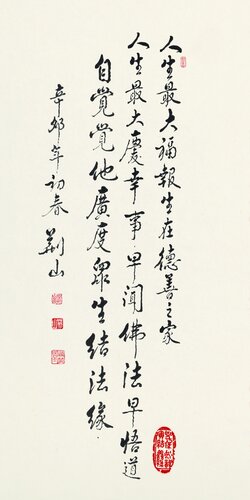 人生最大福報生在德善之家
人生最大慶幸事早聞佛法早悟道
自覺覺他廣度眾生結法緣
辛卯年初春 荊山